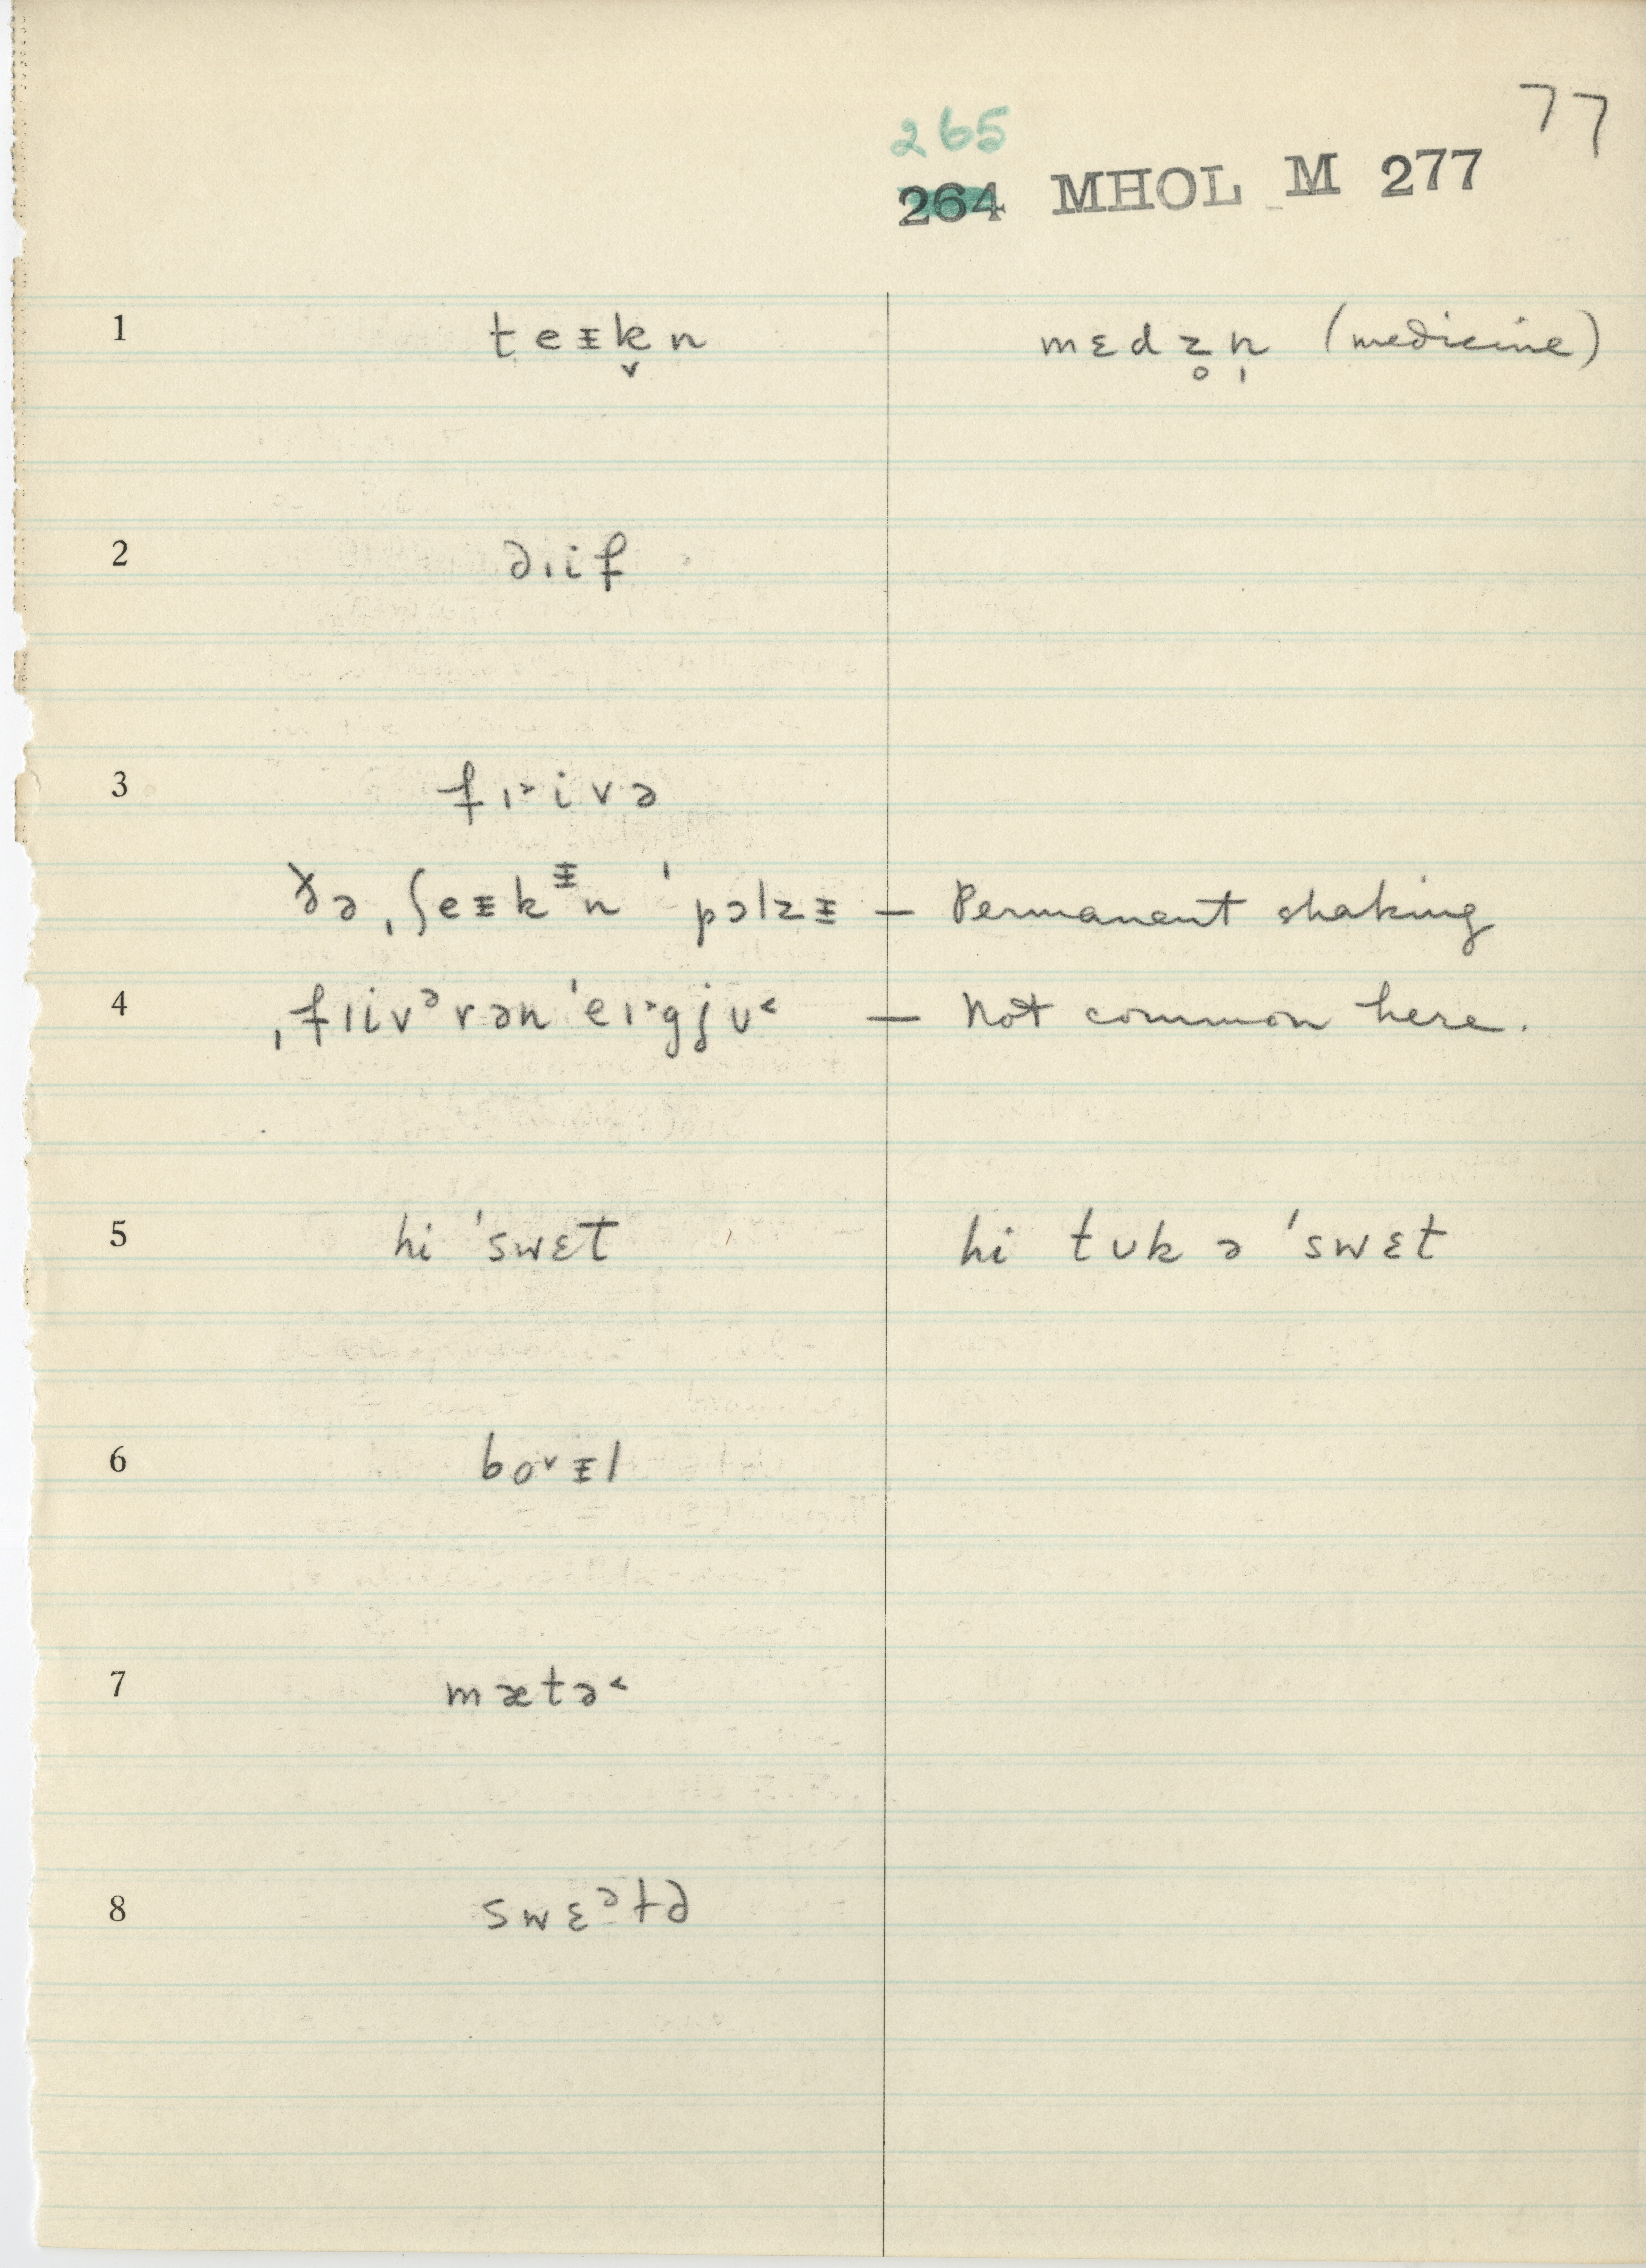 77
265
264 MHOL M 277
1 teᵻk̬n mɛdz̥n̩ (medicine)
2 dɪif
3 fɪ˃ivə
ðə ˌʃeᵻkᵻn ˈpɔlzᵻ — Permanent shaking
4 ˌfɪivᵊrən ˈeɪ˃gjʊ˂ — Not common here.
5 hi ˈswɛt hi tʊk ə ˈswɛt
6 bo˅ᵻl
7 mætə˂
8 swɛᵊtə